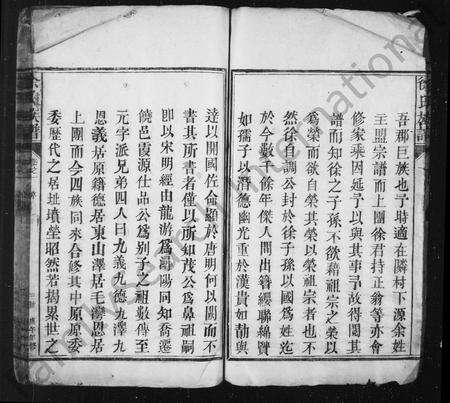 吾郡巨族也予時適在隣村下源余姓
主盟宗譜而上團徐君持正翁等亦會
修家乘因延予以與其事予故得閱其
譜而知徐之子孫不欲藉祖宗之榮以
為榮而欲自榮其榮以榮祖宗者也不
然徐自調公封於徐子孫以國為姓迄
於今數千餘年傑人間出簪纓聯綿賢
如孺子以潛德幽光重於漢貴如勣與
達以開國佐命顯於唐明何以闕而不
書其所書者僅以所知茂公為鼻祖嗣
即以宋明經由龍游為潯陽同知喬遷
饒邑霞源仕品公為别子之祖數傳至
元字派兄弟四人曰九義九德九澤九
恩義居原籍德居東山澤居毛灣恩居
上團而今四族同來合修其中原原委
委歷代之居址墳塋昭然若揭累世之